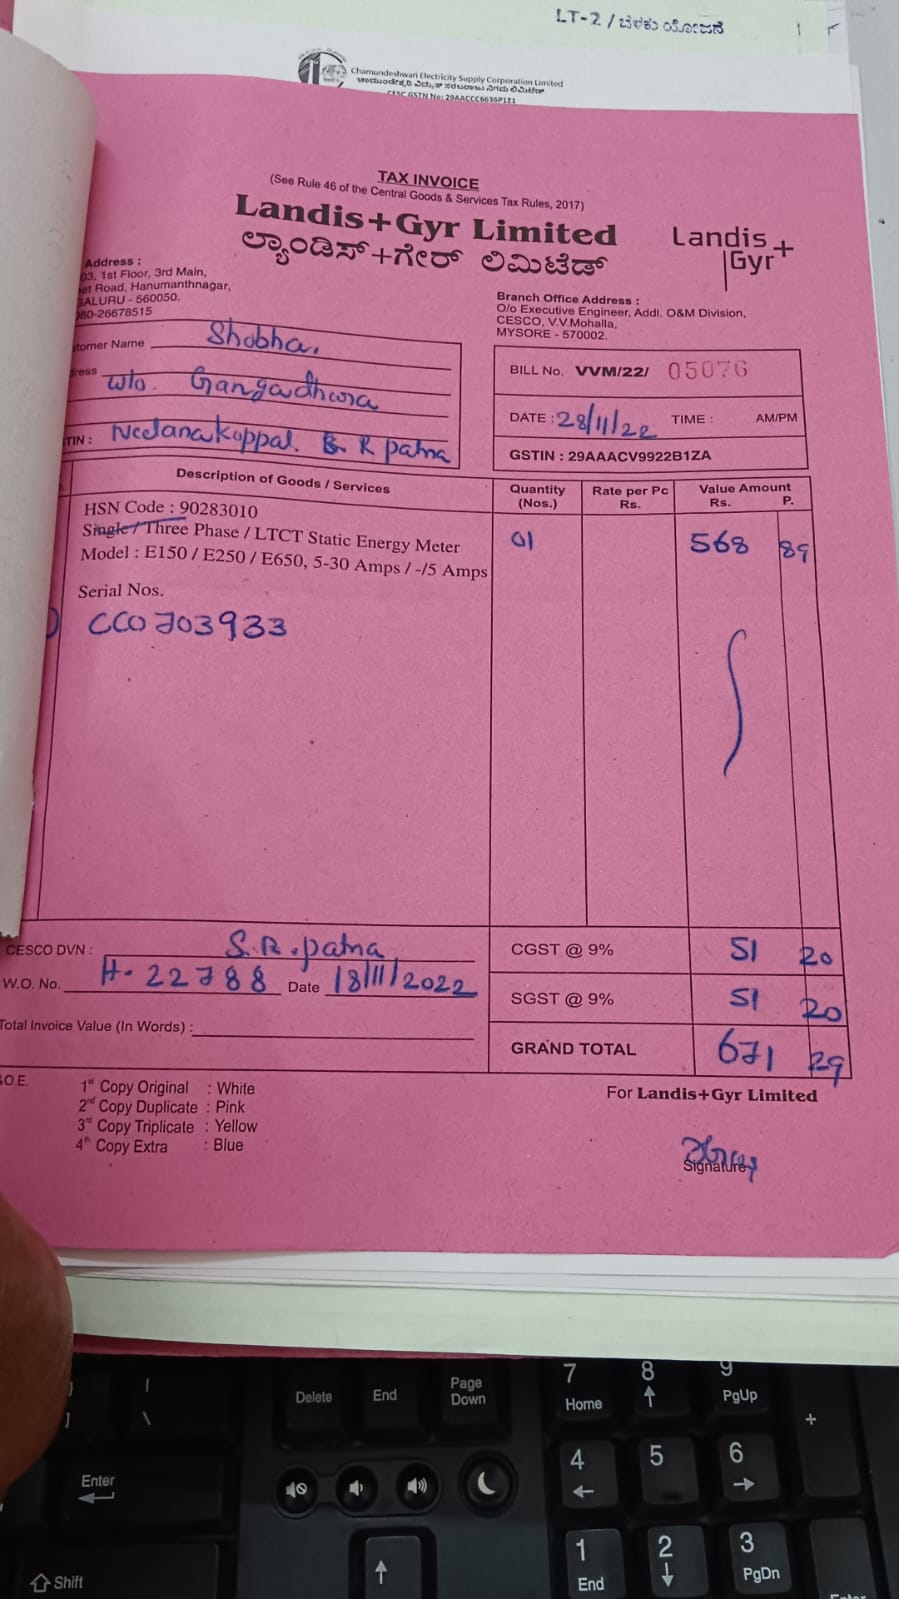 LT-2 / ಬೆಳಕು ಯೋಜನೆ
Chamundeshwari Electricity Supply Corporation Limited
ಚಾಮುಂಡೇಶ್ವರಿ ವಿದ್ಯುತ್ ಸರಬರಾಜು ನಿಗಮ ಲಿಮಿಟೆಡ್
CESC GSTN No: 29AACCC6636P1Z1
TAX INVOICE
(See Rule 46 of the Central Goods & Services Tax Rules, 2017)
Landis+Gyr Limited
ಲ್ಯಾಂಡಿಸ್+ಗೇರ್ ಲಿಮಿಟೆಡ್
Landis
Gyr+
Address :
03, 1st Floor, 3rd Main,
et Road, Hanumanthnagar,
GALURU - 560050.
080-26678515
Branch Office Address :
O/o Executive Engineer, Addl. O&M Division,
CESCO, V.V.Mohalla,
MYSORE - 570002.
tomer Name Shobha.
dress w/o. Gangadhara
TIN : Neelanakoppal. K R patna
BILL No. VVM/22/ 05076
DATE : 28/11/22 TIME : AM/PM
GSTIN : 29AAACV9922B1ZA
Description of Goods / Services Quantity (Nos.) Rate per Pc Rs. Value Amount Rs. P.
HSN Code : 90283010
Single / Three Phase / LTCT Static Energy Meter 01 568 89
Model : E150 / E250 / E650, 5-30 Amps / -/5 Amps
Serial Nos.
CC0703933
CESCO DVN : S.R.patna
W.O. No. H-22788 Date 18/11/2022
Total Invoice Value (In Words) :
CGST @ 9% 51 20
SGST @ 9% 51 20
GRAND TOTAL 671 29
.O.E.
1st Copy Original : White
2nd Copy Duplicate : Pink
3rd Copy Triplicate : Yellow
4th Copy Extra : Blue
For Landis+Gyr Limited
Signature
Delete End Page Down 7 Home 8 9 PgUp
Enter 4 5 6 +
Shift 1 End 2 3 PgDn